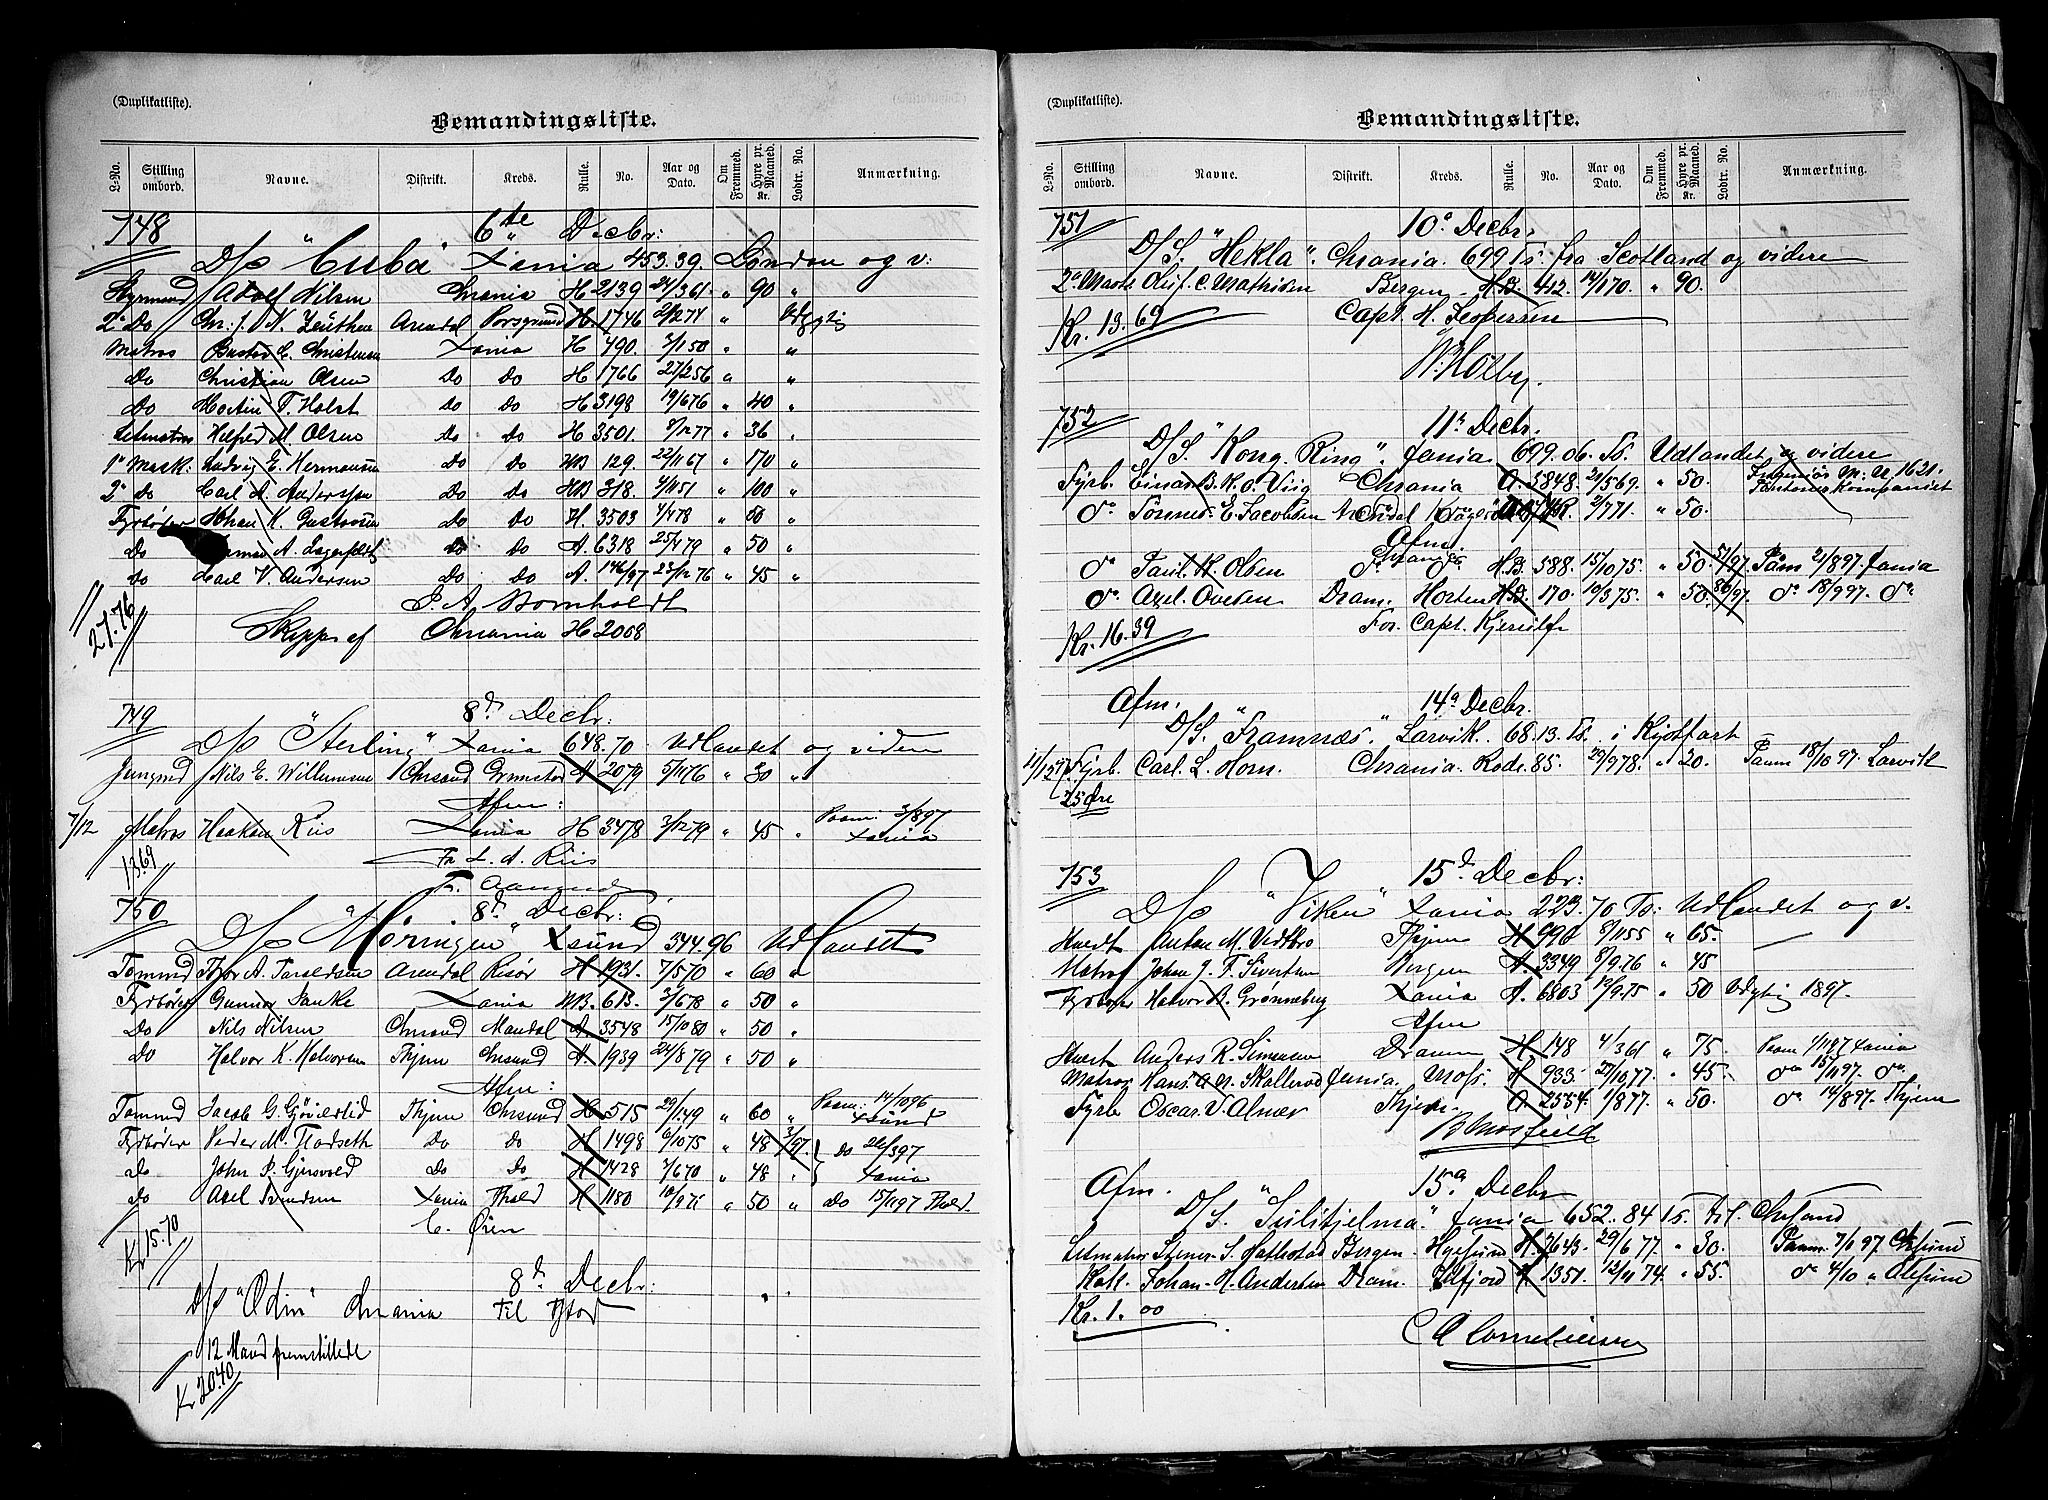 (Duplikatliste).
Bemandingsliste.
L-No. Stilling ombord. Navne. Distrikt. Kreds. Rulle. No. Aar og Dato. Om Fremmed. Hyre pr. Maaned. Kr. Lodtr. No. Anmærkning.
748 6te Decbr:
D/S "Cuba" Xania 453.39. London og v:
Styrmand Adolf Nilsen Chrania H 2139 24/361 " 90 "
2 Do Chr: Zeuthen Arendal Porsgrund H. 1746 2/274 " Udygtig
Matros Gustav C. Christensen Xania H 490. 3/150 " "
Do Christian Olsen Do Do H 1766 27/256 " "
Do Martin T. Holst Do Do H 3198 19/676 " 40 "
Letmatros Hilfred M. Olsen Do Do H 3501. 8/1277 " 36 "
1 Mask: Ludvig E. Hermansen Do Do MB 129. 22/1167 " 170 "
2 Do Carl A. Andersson Do Do MB 318. 4/1151 " 100 "
Fyrbøter Johan K. Gustavsen Do Do H. 3503 7/478 " 50 "
Do A. Lagerfeldt Do Do A. 6318 25/479 " 50 "
Do Carl V. Andersen Do Do A. 146/97 23/1276 " 45 "
J. A. Bornholdt
27.76
Skipper af Chrania H 2058
749 8d Decbr:
D/S "Sterling" Xania 648.70 Udlandet og videre
Jungmd Nils E. Willumsen Chrsand Grimstad A 2079 5/1176 " 30 "
Afm:
7/12 Matros Haakon Riis Xania H 3478 3/1279 " 45 " Paam: 3/897 Xania
13.69
Fr L. A. Riis
Fr. Aamund
750 8d Decbr:
D/S "Horringen" Xsund 344.96 Udlandet
Tømmd Thor A. Taraldsen Arendal Risør H 1931. 7/570 " 60 "
Fyrbøter Gunnar Danke Xania MB. 613. 3/678 " 50 "
Do Nils Nilsen Chrsand Mandal A 3548 15/1080 " 50 "
Do Halvor K. Halvorsen Thjem Chrsund A. 1939 24/879 " 50 "
Afm:
Tømmd Jacob G. Gjøvertlid Thjem Chrsund H 515 29/149 " 60 " Paam: 14/1096 Xsund
Fyrbøter Peder M. Flodseth Do Do H 1498 6/1075 " 48 3/97. Do 26/397
Do John P. Gjersvold Do Do H 1428 3/670 " 48 " Xania
Do Axel Svendsen Xania Thald H 1180 10/971 " 50 " Do 15/1197 Thald.
C. Ørn
Kr 15.70
8d Decbr:
D/S "Odin" Chrania til Ystad
12 Mand fremstillede
Kr 20.40
(Duplikatliste).
Bemandingsliste.
L-No. Stilling ombord. Navne. Distrikt. Kreds. Rulle. No. Aar og Dato. Om Fremmed. Hyre pr. Maaned. Kr. Lodtr. No. Anmærkning.
751 10d Decbr.
D/S. "Hekla". Chrania. 699 Ts. fra Scotland og videre
2d Mask Oluf. C. Mathisen Bergen H.B. 412. 14/170. " 90.
Capt. H. Jespersen
Kr. 13.69
W. Holby.
752 11t Decbr.
D/S. "Kong. Ring". Xania. 699.06. Ts. Udlandet og videre
Fyrb. Einar B. K. O. Viig Chrania A. 3848. 21/569. " 50. M. N 1621. Kompaniet
do E. Jacobsen Arendal 2/771. " 50.
Afm.
do Paul. K. Olsen Chrania do H.B. 588. 15/1075. " 50. 51/97. Paam 21/897. Xania
do Axel. Ovesen Dram. Horten H.B. 170. 19/375. " 50. 86/97. do 18/997. do
For. Capt. Kjerulf
Kr. 16.39
Afm. 14d Decbr.
D/S. "Framnæs". Larvik. 68.13. Ts. i Kystfart
11/12 Fyrb. Carl. L. Horn. Chrania. Rode. 85. 29/978. " 20. Paam 18/1097. Larvik
25 Øre
753 15d Decbr:
D/S "Viken" Xania 223.70 Ts: Udlandet og v.
Hvedt Anton M. Vedtbro Thjem H 990 8/1155 " 65.
Matros Johan J. F. Sivertsen Bergen A. 3349 8/9.76 " 45
Fyrbøter Halvor A. Grønneberg Xania A. 6803 12/9.75 " 50 Udygtig 1897.
Afm
Hvert Anders R. Simensen Dramm H 148 4/361 " 75. Paam 1/1197 Xania
Matros Hans. A. N. Skallerød Xania. Moss. H 933. 27/1077. " 45. do 15/1197. do
Fyrb Oscar. V. Almer Thjem. A. 2554. 1/877. " 50. do 14/897. Thjem
Afm. 15d Decbr
D/S. "Sulitjelma." Xania 652.84 Ts. til. Chrsand
Letmatros Stener. S. Bergen. Hgesund H. 7643. 29/677. " 30. Paam. 7/197. Chrsund
Kok. Johan. H. Andersen Dram. H 1351. 12/1174. " 55. do 4/10 "
Kr. 1.00
C A Corneliussen